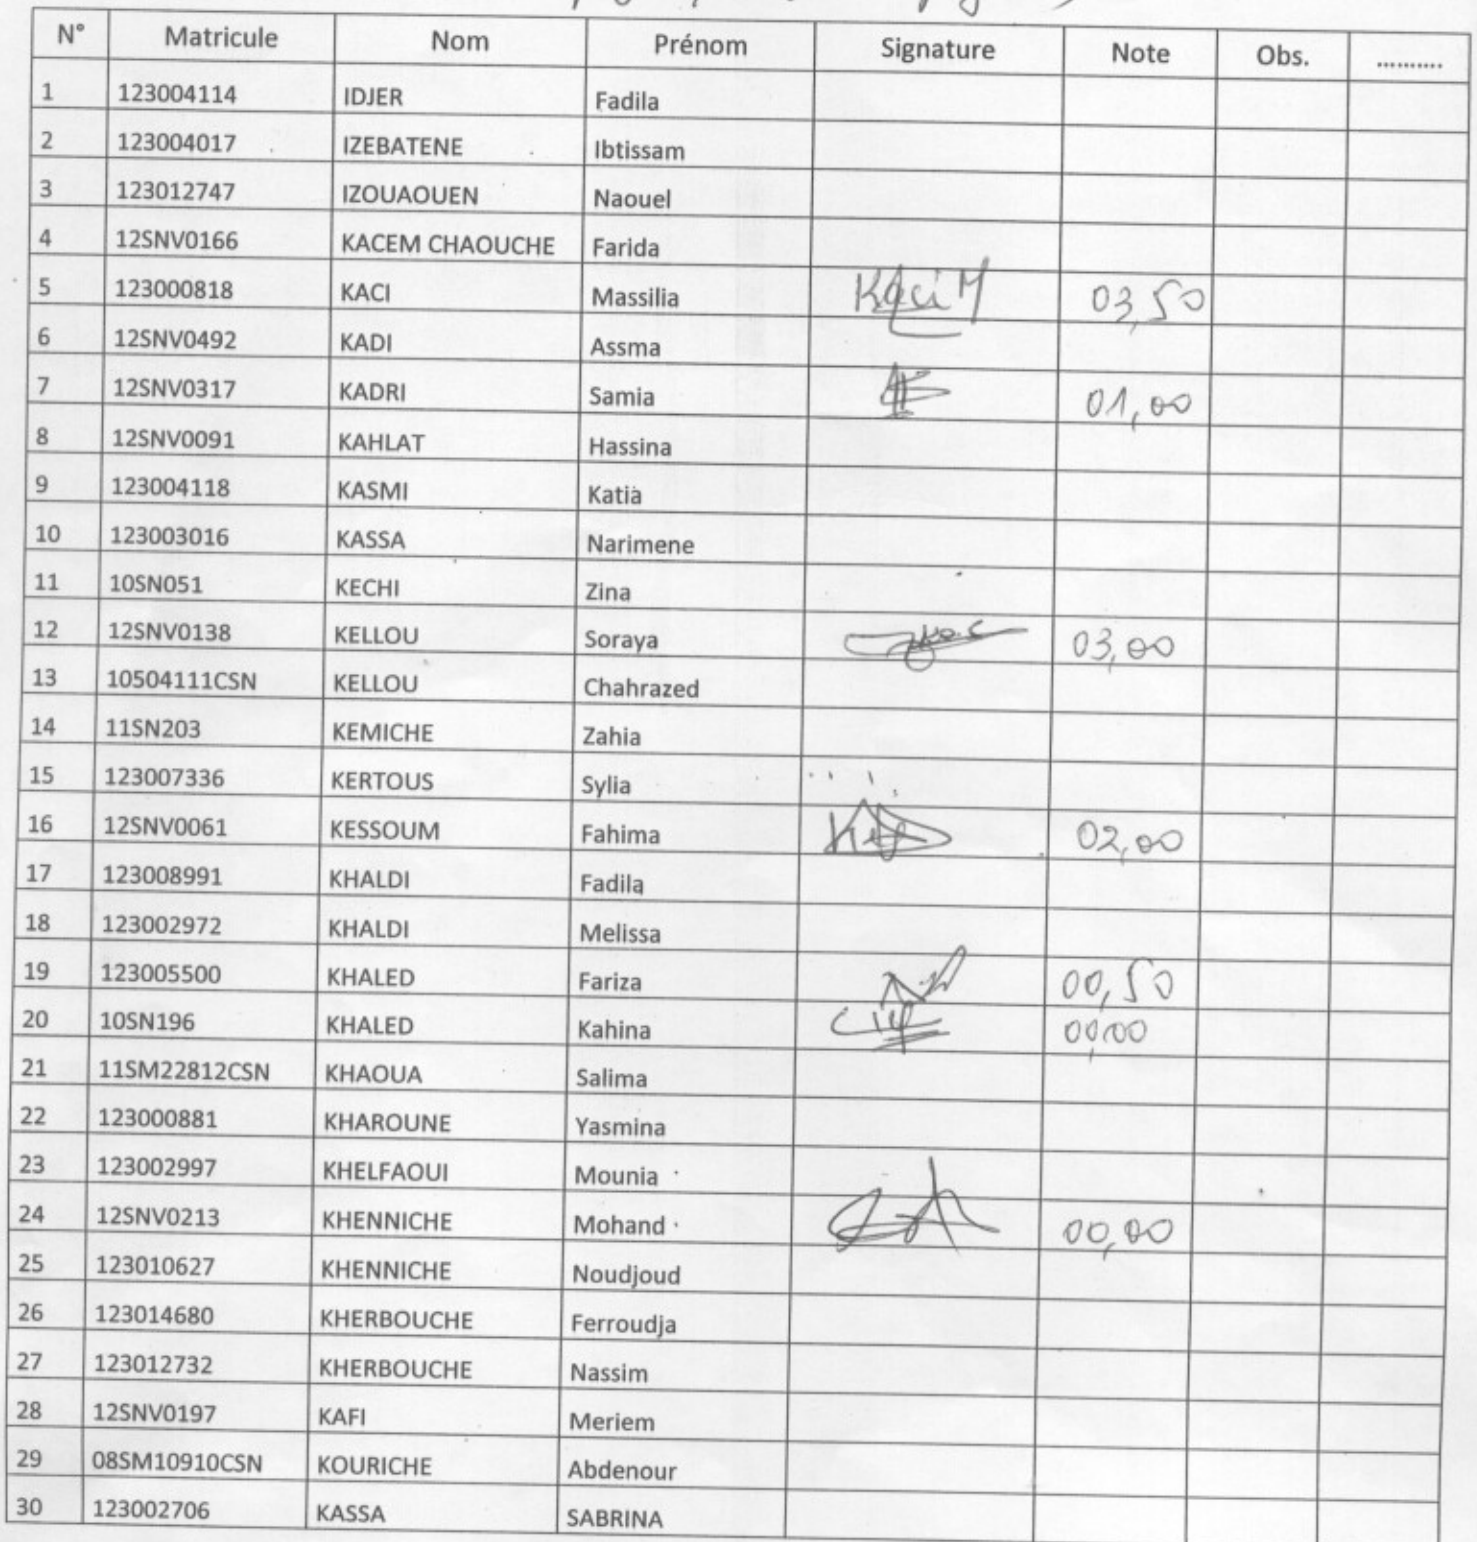 N° Matricule Nom Prénom Signature Note Obs. ..........
1 123004114 IDJER Fadila
2 123004017 IZEBATENE Ibtissam
3 123012747 IZOUAOUEN Naouel
4 12SNV0166 KACEM CHAOUCHE Farida
5 123000818 KACI Massilia Kaci M 03,50
6 12SNV0492 KADI Assma
7 12SNV0317 KADRI Samia 01,00
8 12SNV0091 KAHLAT Hassina
9 123004118 KASMI Katia
10 123003016 KASSA Narimene
11 10SN051 KECHI Zina
12 12SNV0138 KELLOU Soraya 03,00
13 10504111CSN KELLOU Chahrazed
14 11SN203 KEMICHE Zahia
15 123007336 KERTOUS Sylia
16 12SNV0061 KESSOUM Fahima 02,00
17 123008991 KHALDI Fadila
18 123002972 KHALDI Melissa
19 123005500 KHALED Fariza 00,50
20 10SN196 KHALED Kahina 00,00
21 11SM22812CSN KHAOUA Salima
22 123000881 KHAROUNE Yasmina
23 123002997 KHELFAOUI Mounia
24 12SNV0213 KHENNICHE Mohand 00,00
25 123010627 KHENNICHE Noudjoud
26 123014680 KHERBOUCHE Ferroudja
27 123012732 KHERBOUCHE Nassim
28 12SNV0197 KAFI Meriem
29 08SM10910CSN KOURICHE Abdenour
30 123002706 KASSA SABRINA